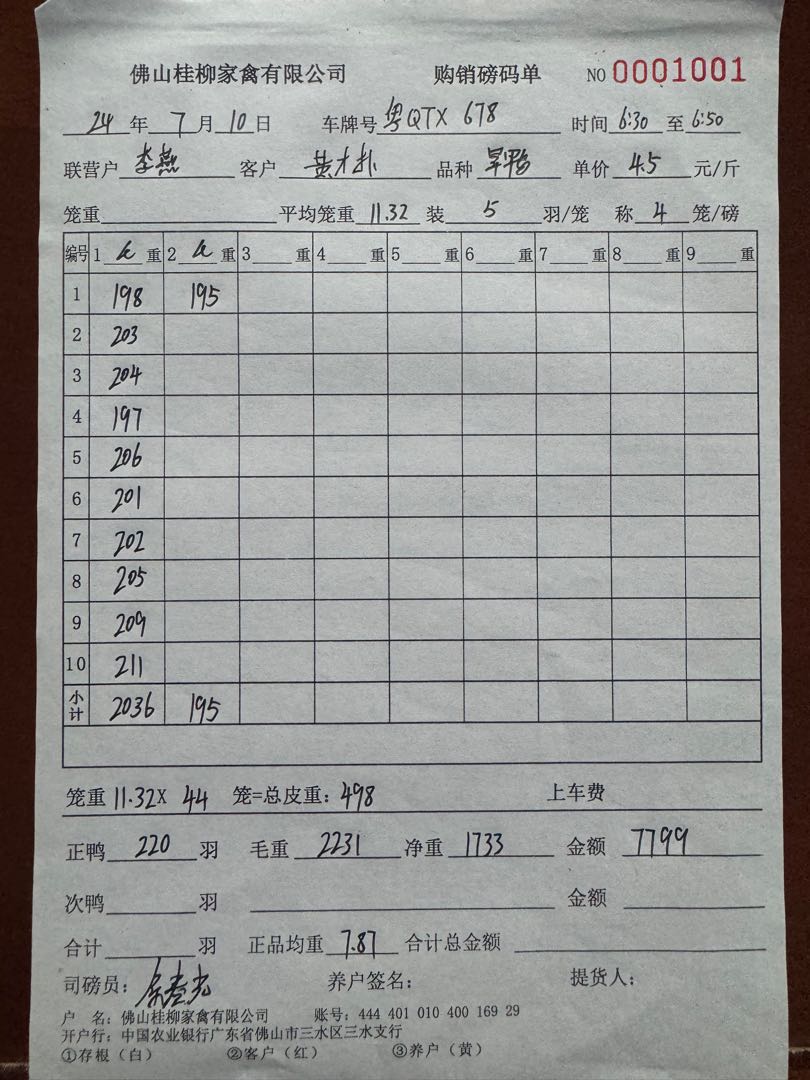 佛山桂柳家禽有限公司 购销磅码单 NO 0001001
24 年 7 月 10 日 车牌号 粤QTX 678 时间 6:30 至 6:50
联营户 李燕 客户 黄才扑 品种 旱鸭 单价 4.5 元/斤
笼重 平均笼重 11.32 装 5 羽/笼 称 4 笼/磅
编号 1 毛 重 2 毛 重 3 重 4 重 5 重 6 重 7 重 8 重 9 重
1 198 195
2 203
3 204
4 197
5 206
6 201
7 202
8 205
9 209
10 211
小计 2036 195
笼重 11.32 X 44 笼=总皮重: 498 上车费
正鸭 220 羽 毛重 2231 净重 1733 金额 7799
次鸭 羽 金额
合计 羽 正品均重 7.87 合计总金额
司磅员: 养户签名: 提货人:
户 名: 佛山桂柳家禽有限公司 账号: 444 401 010 400 169 29
开户行: 中国农业银行广东省佛山市三水区三水支行
①存根（白） ②客户（红） ③养户（黄）